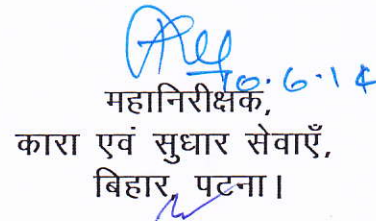 10.6.14
महानिरीक्षक,
कारा एवं सुधार सेवाएँ,
बिहार, पटना।